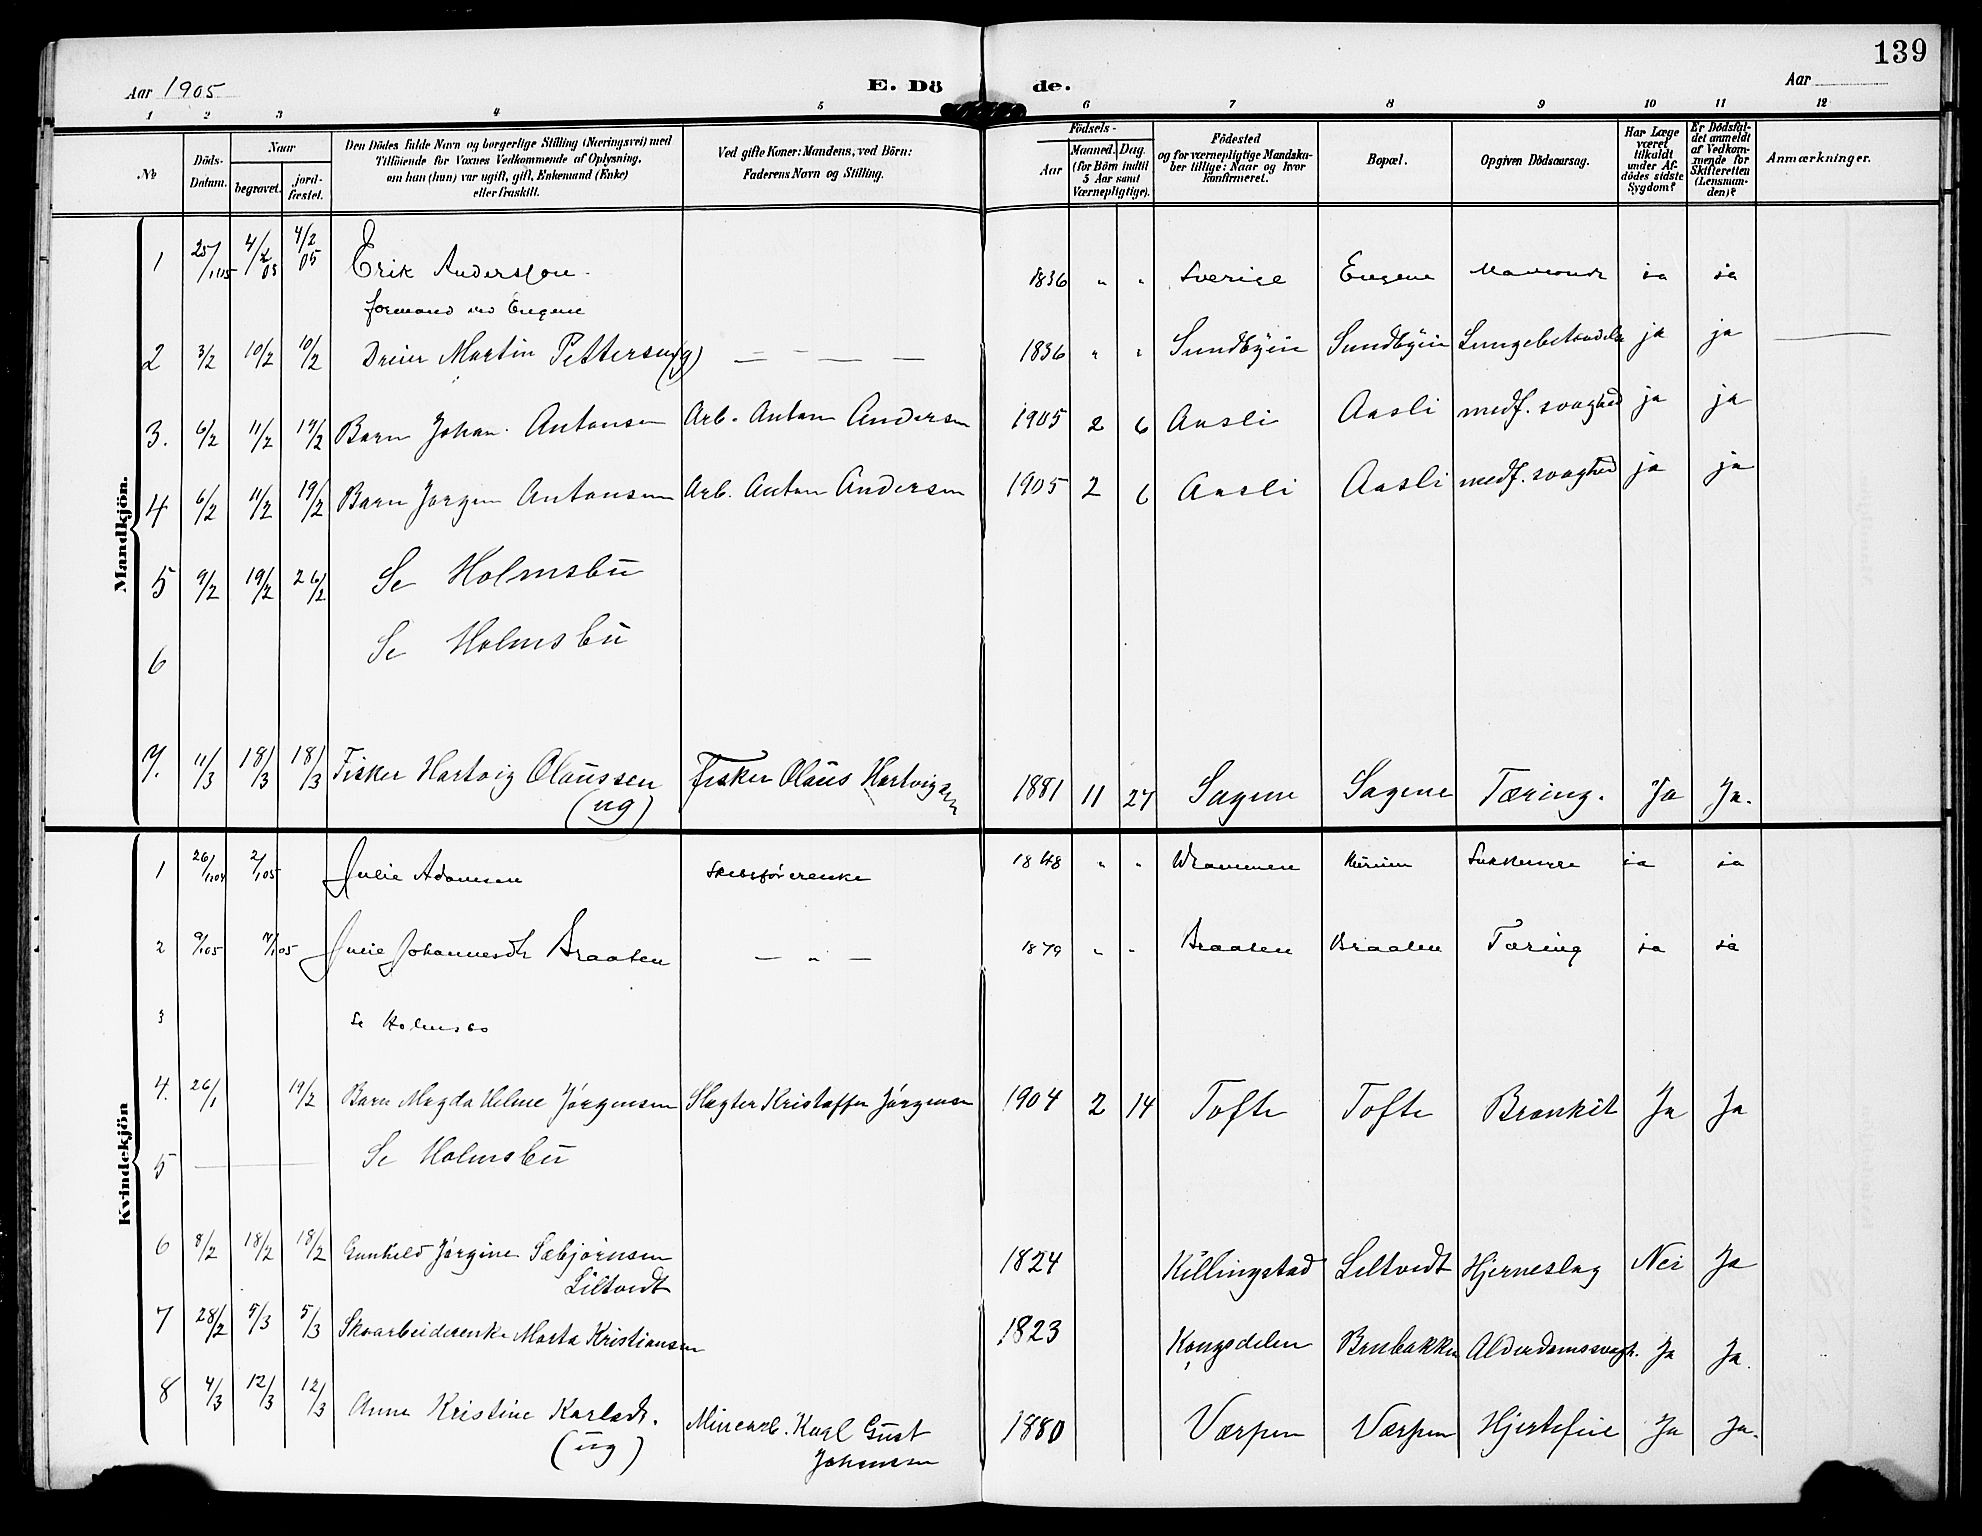 139
Aar 1905
E. Dö de.
Aar
1 2 3 4 5 6 7 8 9 10 11 12
№
Döds-Datum.
Naar
begravet.
jord-fæstet.
Den Dödes fulde Navn og borgerlige Stilling (Næringsvei) med
Tilföiende for Voxnes Vedkommende af Oplysning,
om han (hun) var ugift, gift, Enkemand (Enke)
eller fraskilt.
Ved gifte Koner: Mandens, ved Börn:
Faderens Navn og Stilling.
Födsels-
Aar
Maaned. Dag.
(for Börn indtil
5 Aar samt
Værnepligtige).
Födested
og for værnepligtige Mandska-
ber tillige: Naar og hvor
konfirmeret.
Bopæl.
Opgiven Dödsaarsag.
Har Læge
været
tilkaldt
under Af-
dödes sidste
Sygdom?
Er Dödsfal-
det anmeldt
af Vedkom-
mende for
Skifteretten
(Lensman-
den)?
Anmærkninger.
Mandkjön.
1 4/2 05 4/2 05 Erik Andersson 1836 " " Sverige Engene ja ja
formand ved Engene
2 3/2 10/2 10/2 Dreier Martin Pettersen (g) 1836 " " Sundbyen Sundbyen Lungebetændelse ja ja
3. 6/2 11/2 19/2 Barn Johan Antonsen Arb. Anton Andersen 1905 2 6 Aasli Aasli medf. svaghed ja ja
4 6/2 11/2 19/2 Barn Jørgen Antonsen Arb. Anton Andersen 1905 2 6 Aasli Aasli medf. svaghed ja ja
5 9/2 19/2 26/2 Se Holmsbu
6 Se Holmsbu
7. 11/3 18/3 18/3 Fisker Hartvig Olaussen Fisker Olaus Hartvigsen 1881 11 27 Sagene Sagene Tæring. Ja Ja.
(ug)
Kvindekjön
1 2/1 05 Julie Adamsen Skibsførerenke 1848 " " Drammen ja ja
2 9/1 05 Julie Johannesdt Braaten — " — 1879 " " Braaten Braaten Tæring ja ja
3 Se Holmsbo
4. 26/1 19/2 Barn Magda Helene Jørgensen Slagter Kristoffer Jørgensen 1904 2 14 Tofte Tofte Bronkit Ja Ja
5 Se Holmsbu
6 8/2 18/2 18/2 Gunhild Jørgine Sæbjørnsen 1824 Killingstad Liltvedt Hjerneslag Nei Ja
Liltvedt
7 28/2 5/3 5/3 Skoarbeiderenke Marta Kristiansen 1823 Kongsdelen Brubakken Alderdomssvagh. Ja Ja.
8 4/3 12/3 12/3 Anne Kristine Karlsdt. Minearb. Karl Gust 1880 Værpen Værpen Hjertefeil Ja Ja.
(ug) Johansen